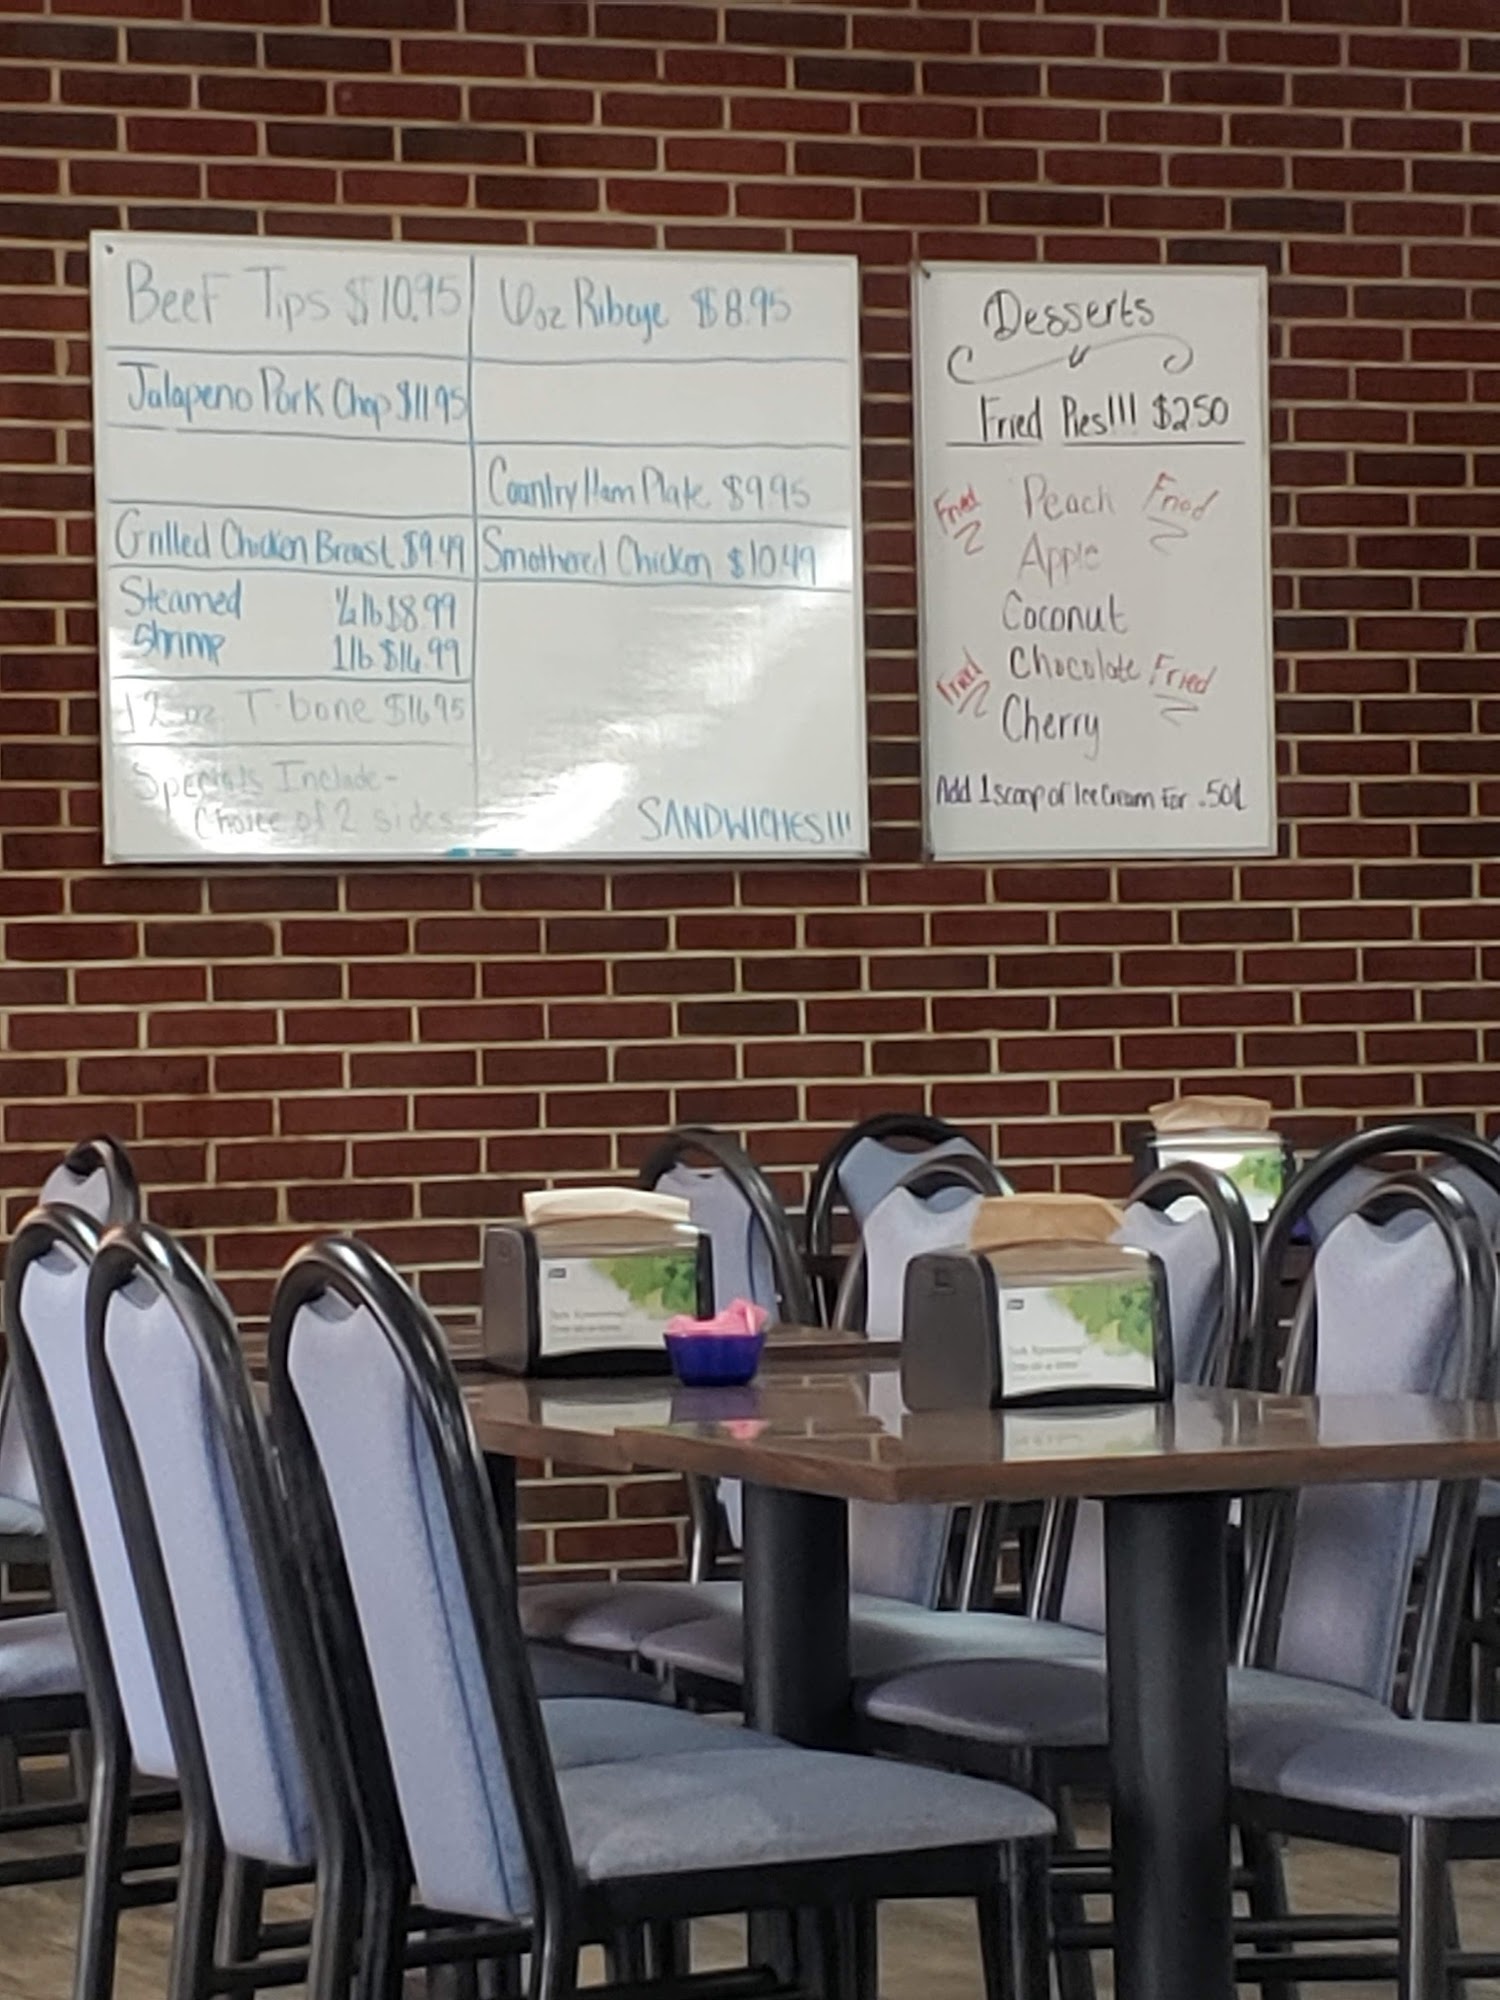 Beef Tips $10.95
Jalapeno Pork Chop $11.95
Grilled Chicken Breast $9.49
Steamed Shrimp
1/2 lb $8.99
1 lb $16.99
12 oz T-bone $16.95
Specials Include-
Choice of 2 sides
6oz Ribeye $8.95
Country Ham Plate $9.95
Smothered Chicken $10.49
SANDWICHES!!!
Desserts
Fried Pies!!! $2.50
Fried Peach Fried
Apple
Coconut
Fried Chocolate Fried
Cherry
Add 1 scoop of Ice Cream For .50¢